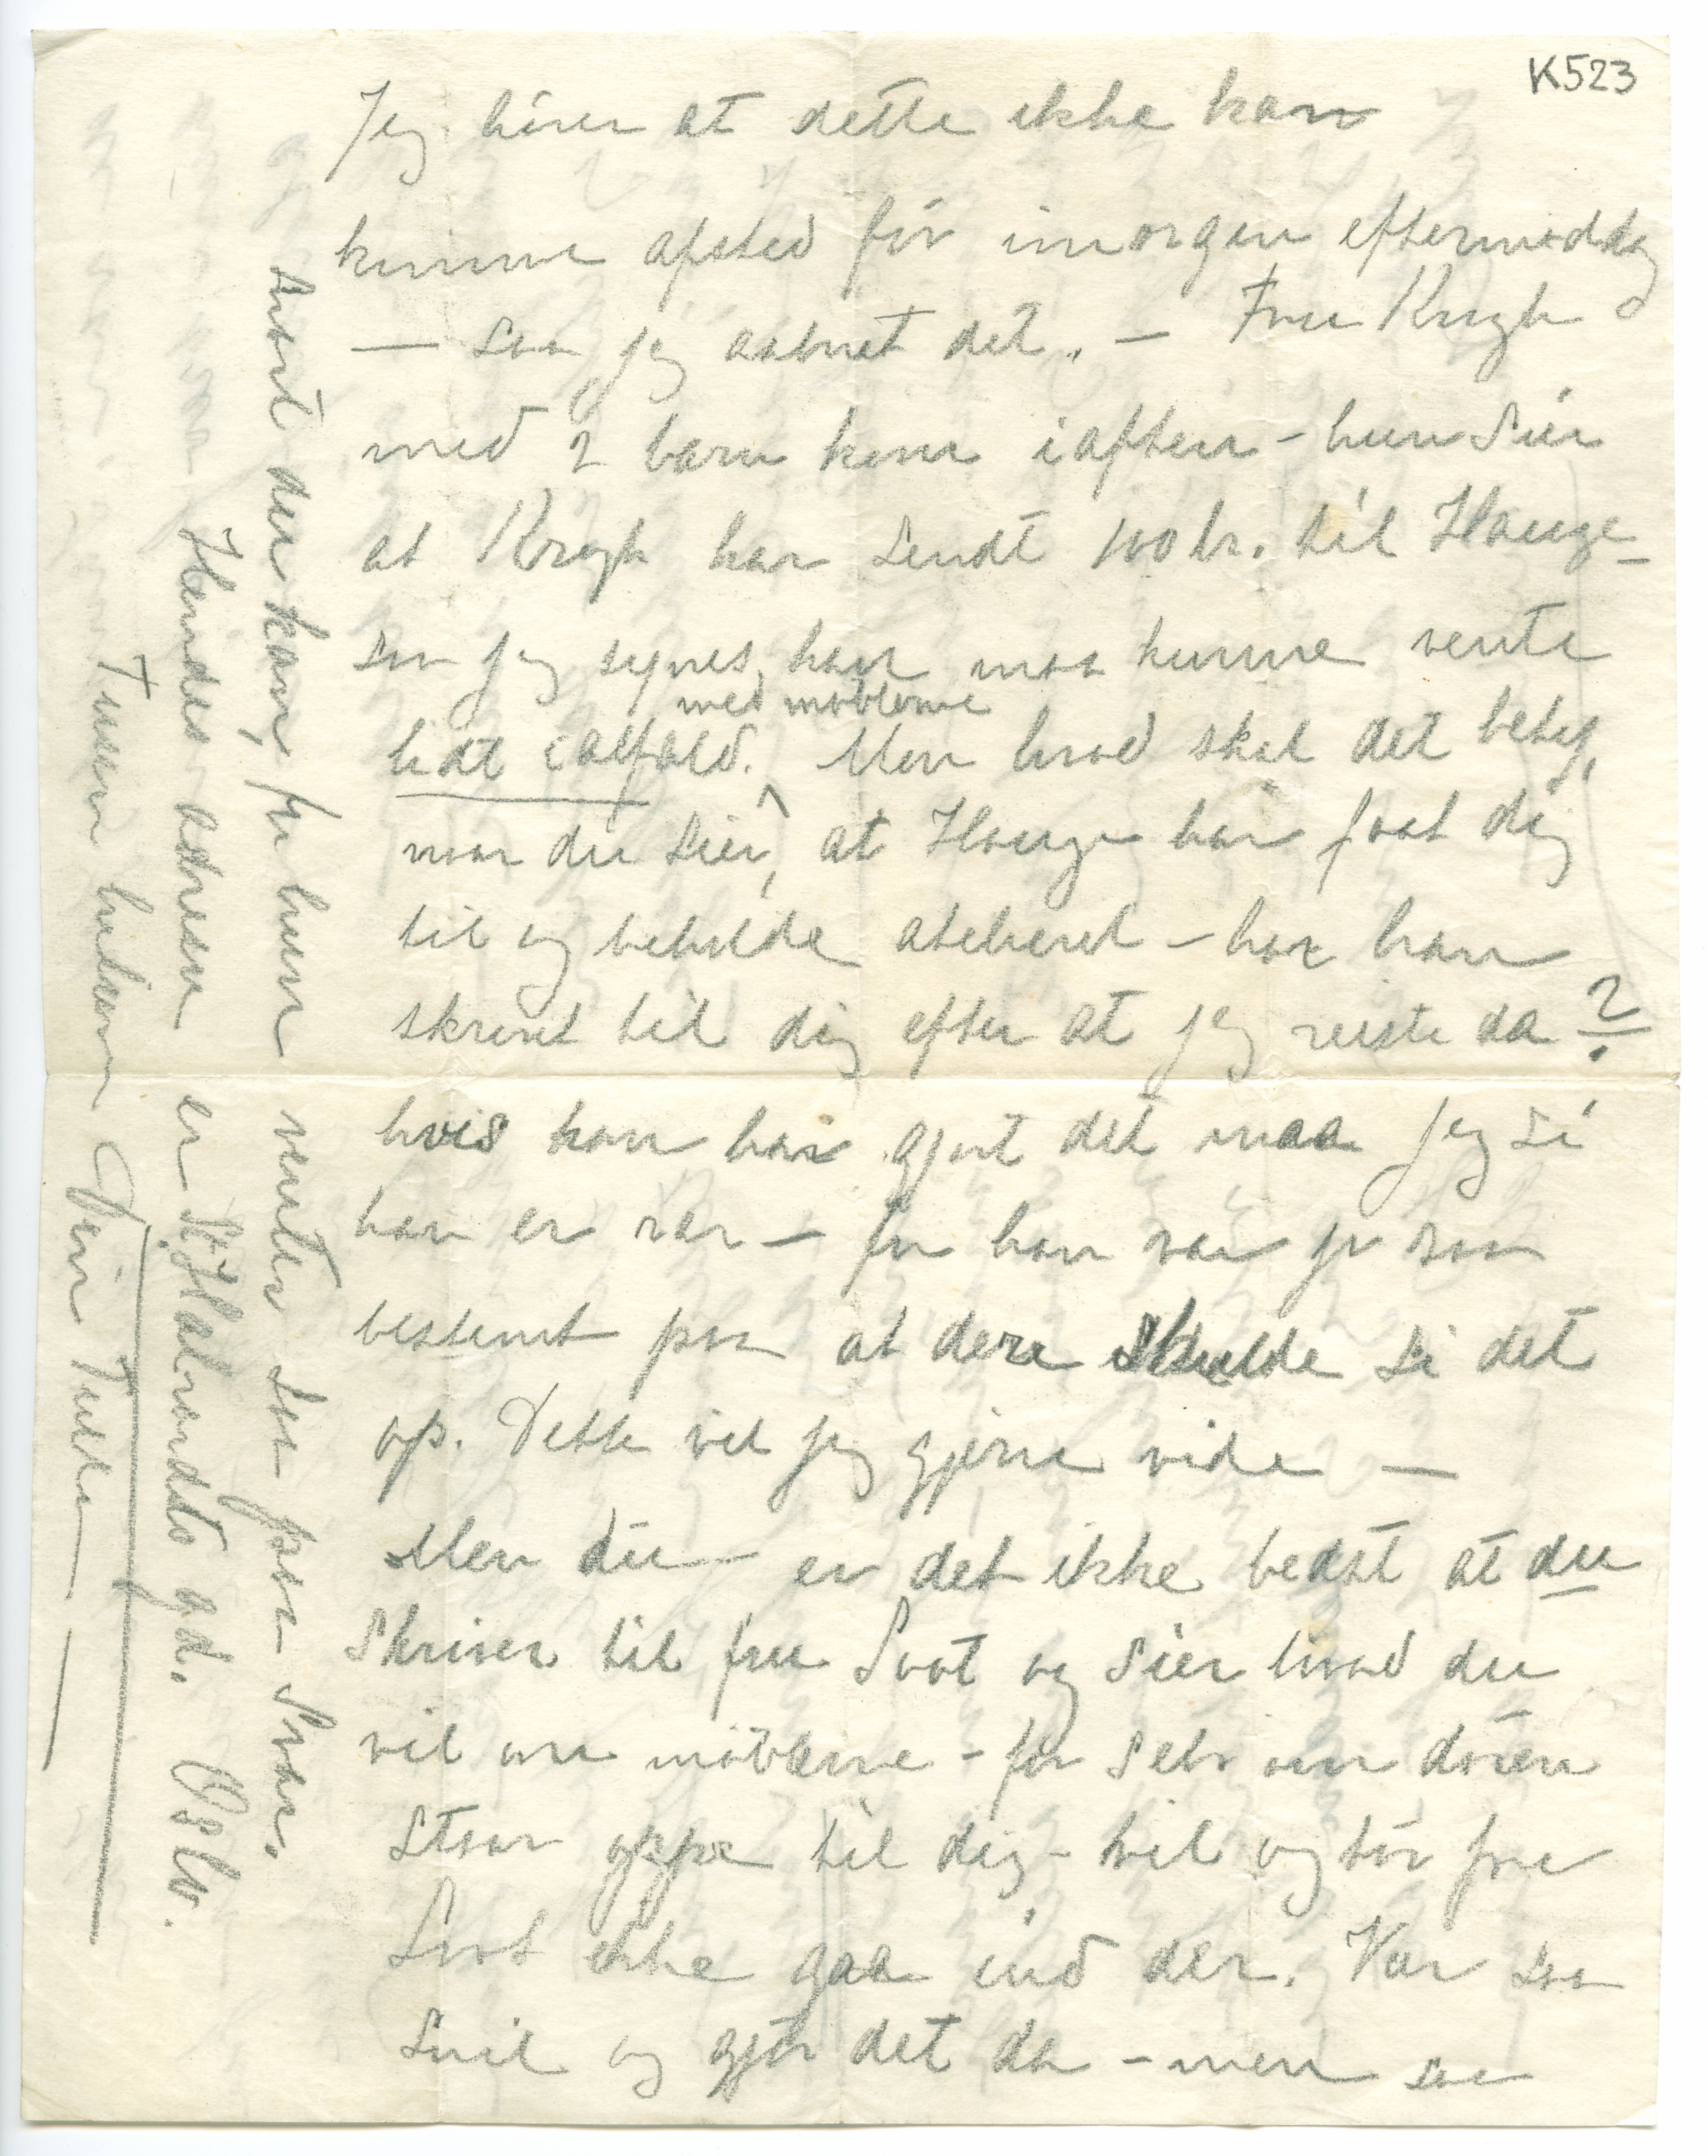 K523
Jeg hører at dette ikke kan
komme afsted før imorgen eftermiddag
— saa jeg aabnet det. — Fru Krogh
med 2 barn kom iaften - hun sier
at Krogh har sendt 100 kr. til Hauge -
saa jeg synes, han maa kunne vente
med møblerne
lidt ialfald. Men hvad skal det bety,
naar du sier, at Hauge har faat dig
til og beholde atelieret - har han
skrevet til dig efter at jeg reiste da?
hvis han har gjort det maa jeg si
han er rar — for han var jo saa
bestemt paa at dere skulde si det
op. Dette vil jeg gjerne vide —
Men du - er det ikke bedst at du
skriver til fru Svot og sier hvad du
vil om møblerne - for selv om døren
staar oppe til dig - vil og tør fru
Svot ikke gaa ind der. Vær saa
snil og gjør det da - men saa
snart du kan, for hun venter saa paa Svar.
Hendes adresse er St. Halvards gd. Oslo.
Tusen hilsen Din Tulla —